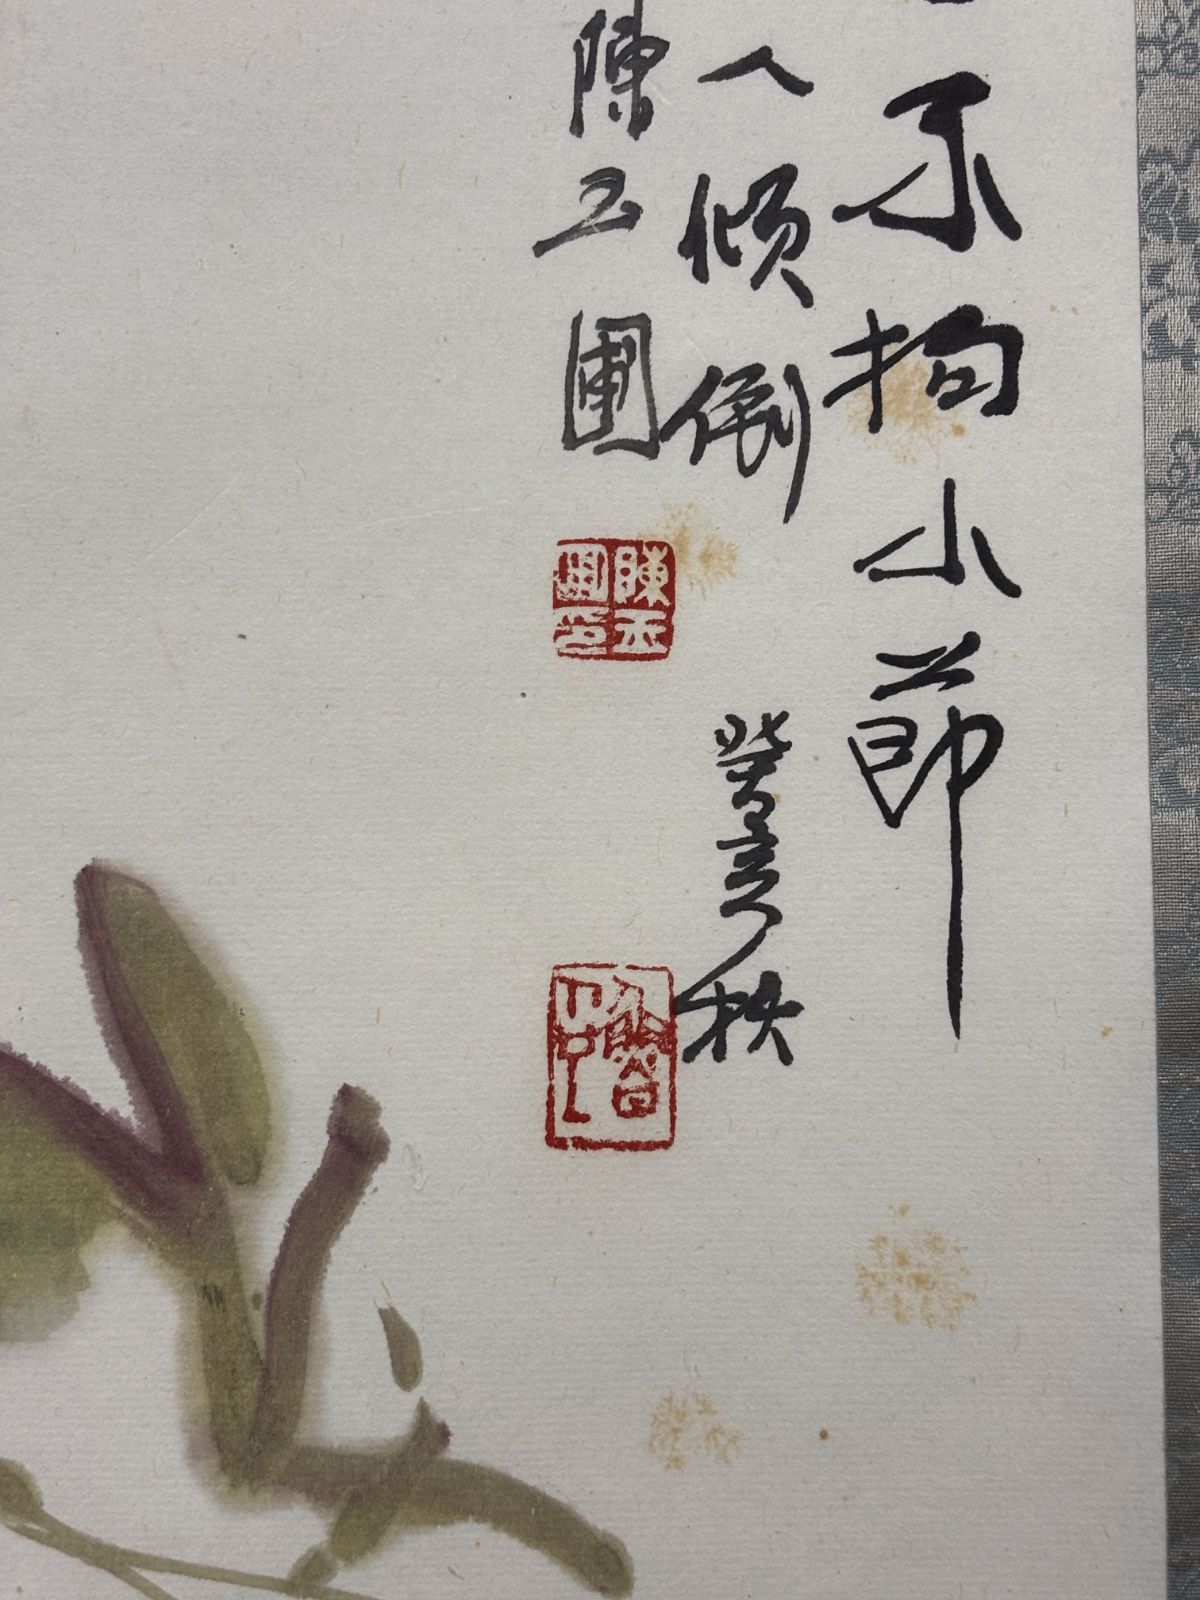 不拘小節
人傾倒
癸亥秋
陳玉圃
陳玉圃印